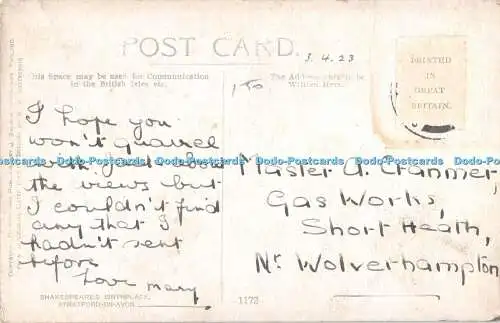 POST CARD.
5.4.23
This Space may be used for Communication
in the British Isles etc.
The Address only to be
Written Here.
PRINTED
IN
GREAT
BRITAIN.
I hope you
won't quarrel
with Jack about
the views but
I couldn't find
any that I
hadn't sent
before
Love Mary
Master A. Cranmer,
Gas Works,
Short Heath,
Nr Wolverhampton
SHAKESPEARE'S BIRTHPLACE,
STRATFORD-ON-AVON.
1173
Dodo-Postcards Dodo-Postcards Dodo-Postcards Dodo-Postcards Dodo-Postcards